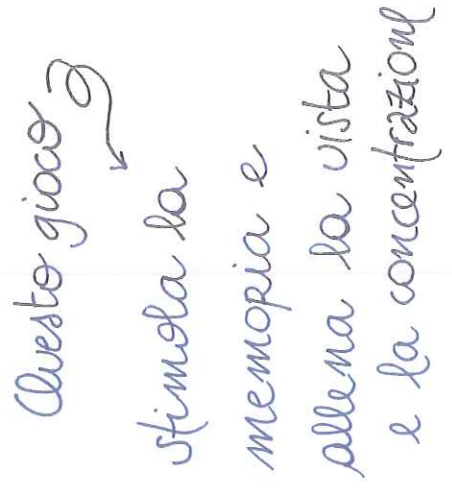 Questo gioco
stimola la
memoria e
allena la vista
e la concentrazione